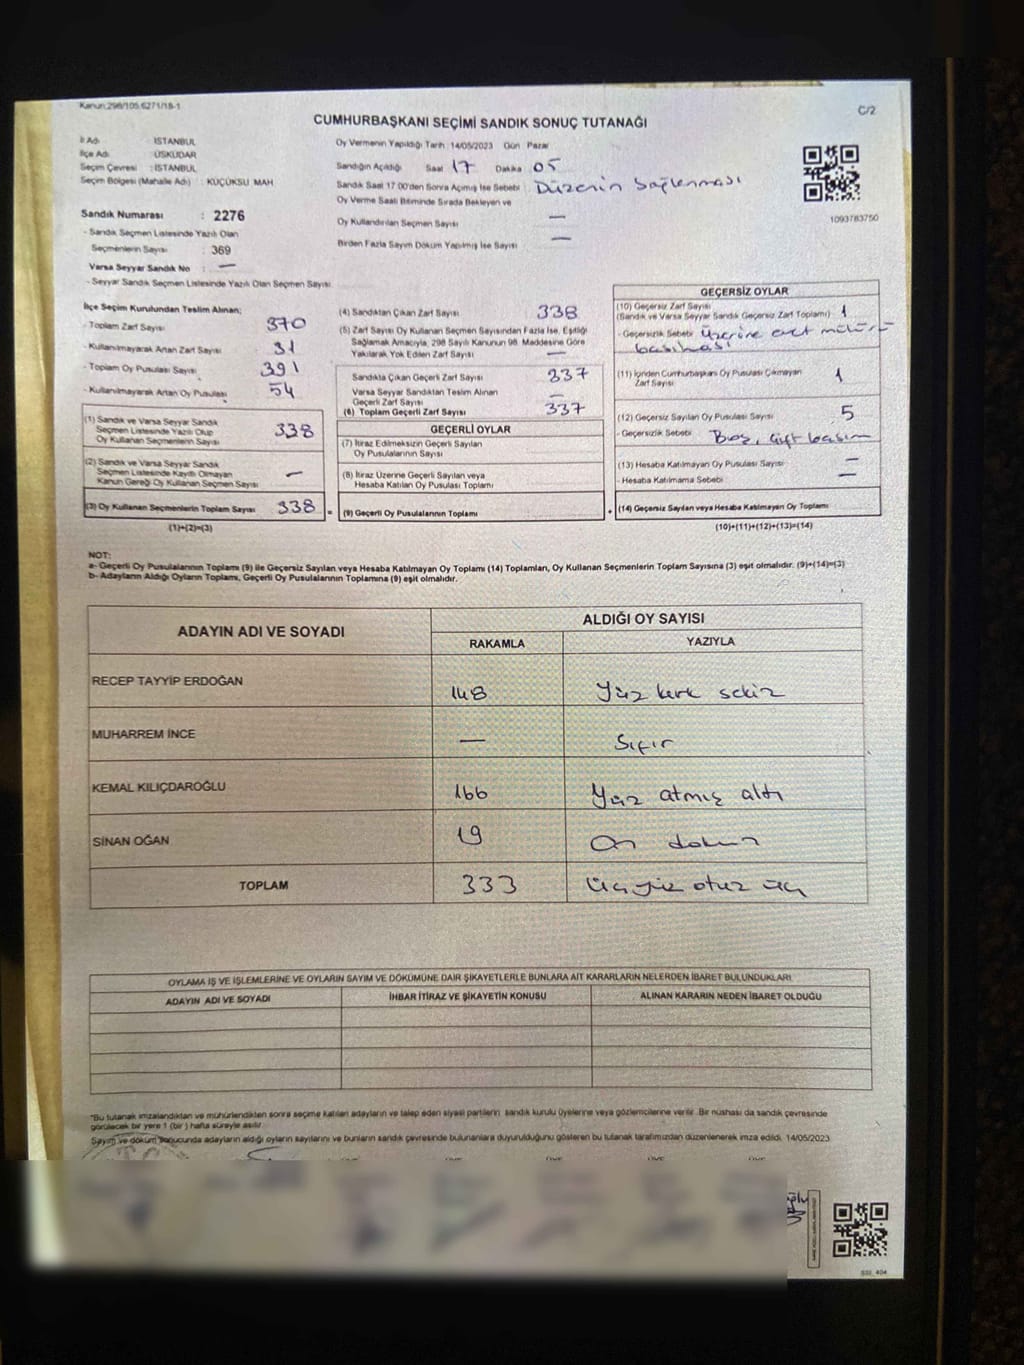 Kanun:298/105.6271/18-1
C/2
CUMHURBAŞKANI SEÇİMİ SANDIK SONUÇ TUTANAĞI
İl Adı : İSTANBUL
İlçe Adı : ÜSKÜDAR
Seçim Çevresi : İSTANBUL
Seçim Bölgesi (Mahalle Adı) : KÜÇÜKSU MAH
Sandık Numarası : 2276
- Sandık Seçmen Listesinde Yazılı Olan
Seçmenlerin Sayısı : 369
Varsa Seyyar Sandık No : —
- Seyyar Sandık Seçmen Listesinde Yazılı Olan Seçmen Sayısı
Oy Vermenin Yapıldığı Tarih: 14/05/2023 Gün Pazar
Sandığın Açıldığı Saat 17 Dakika 05
Sandık Saat 17:00'den Sonra Açımış İse Sebebi Düzenin Sağlanması
Oy Verme Saati Bitiminde Sırada Bekleyen ve
Oy Kullandırılan Seçmen Sayısı —
Birden Fazla Sayım Döküm Yapılmış İse Sayısı —
1093783750
İlçe Seçim Kurulundan Teslim Alınan;
- Toplam Zarf Sayısı 370
- Kullanılmayarak Artan Zarf Sayısı 31
- Toplam Oy Pusulası Sayısı 391
- Kullanılmayarak Artan Oy Pusulası 54
(1) Sandık ve Varsa Seyyar Sandık
Seçmen Listesinde Yazılı Olup
Oy Kullanan Seçmenlerin Sayısı 338
(2) Sandık ve Varsa Seyyar Sandık
Seçmen Listesinde Kayıtlı Olmayan
Kanun Gereği Oy Kullanan Seçmen Sayısı —
(3) Oy Kullanan Seçmenlerin Toplam Sayısı 338 =
(1)+(2)=(3)
(4) Sandıktan Çıkan Zarf Sayısı 338
(5) Zarf Sayısı Oy Kullanan Seçmen Sayısından Fazla İse, Eşitliği
Sağlamak Amacıyla, 298 Sayılı Kanunun 98. Maddesine Göre
Yakılarak Yok Edilen Zarf Sayısı —
Sandıkta Çıkan Geçerli Zarf Sayısı 337
Varsa Seyyar Sandıktan Teslim Alınan
Geçerli Zarf Sayısı —
(6) Toplam Geçerli Zarf Sayısı 337
GEÇERLİ OYLAR
(7) İtiraz Edilmeksizin Geçerli Sayılan
Oy Pusulalarının Sayısı
(8) İtiraz Üzerine Geçerli Sayılan veya
Hesaba Katılan Oy Pusulası Toplamı
(9) Geçerli Oy Pusulalarının Toplamı +
GEÇERSİZ OYLAR
(10) Geçersiz Zarf Sayısı
(Sandık ve Varsa Seyyar Sandık Geçersiz Zarf Toplamı) 1
- Geçersizlik Sebebi Üzerine evet mührü
basılması
(11) İçinden Cumhurbaşkanı Oy Pusulası Çıkmayan
Zarf Sayısı 1
(12) Geçersiz Sayılan Oy Pusulası Sayısı 5
- Geçersizlik Sebebi Boş, çift basım
(13) Hesaba Katılmayan Oy Pusulası Sayısı —
- Hesaba Katılmama Sebebi —
(14) Geçersiz Sayılan veya Hesaba Katılmayan Oy Toplamı
(10)+(11)+(12)+(13)=(14)
NOT:
a- Geçerli Oy Pusulalarının Toplamı (9) ile Geçersiz Sayılan veya Hesaba Katılmayan Oy Toplamı (14) Toplamları, Oy Kullanan Seçmenlerin Toplam Sayısına (3) eşit olmalıdır. (9)+(14)=(3)
b- Adayların Aldığı Oyların Toplamı, Geçerli Oy Pusulalarının Toplamına (9) eşit olmalıdır.
ADAYIN ADI VE SOYADI
ALDIĞI OY SAYISI
RAKAMLA YAZIYLA
RECEP TAYYİP ERDOĞAN 148 Yüz kırk sekiz
MUHARREM İNCE — Sıfır
KEMAL KILIÇDAROĞLU 166 Yüz atmış altı
SİNAN OĞAN 19 On dokuz
TOPLAM 333 Üçyüz otuz üç
OYLAMA İŞ VE İŞLEMLERİNE VE OYLARIN SAYIM VE DÖKÜMÜNE DAİR ŞİKAYETLERLE BUNLARA AİT KARARLARIN NELERDEN İBARET BULUNDUKLARI
ADAYIN ADI VE SOYADI İHBAR İTİRAZ VE ŞİKAYETİN KONUSU ALINAN KARARIN NEDEN İBARET OLDUĞU
*Bu tutanak imzalandıktan ve mühürlendikten sonra seçime katılan adayların ve talep eden siyasi partilerin sandık kurulu üyelerine veya gözlemcilerine verilir. Bir nüshası da sandık çevresinde
görülecek bir yere 1 (bir) hafta süreyle asılır.
Sayım ve döküm sonucunda adayların aldığı oyların sayılarını ve bunların sandık çevresinde bulunanlara duyurulduğunu gösteren bu tutanak tarafımızdan düzenlenerek imza edildi. 14/05/2023